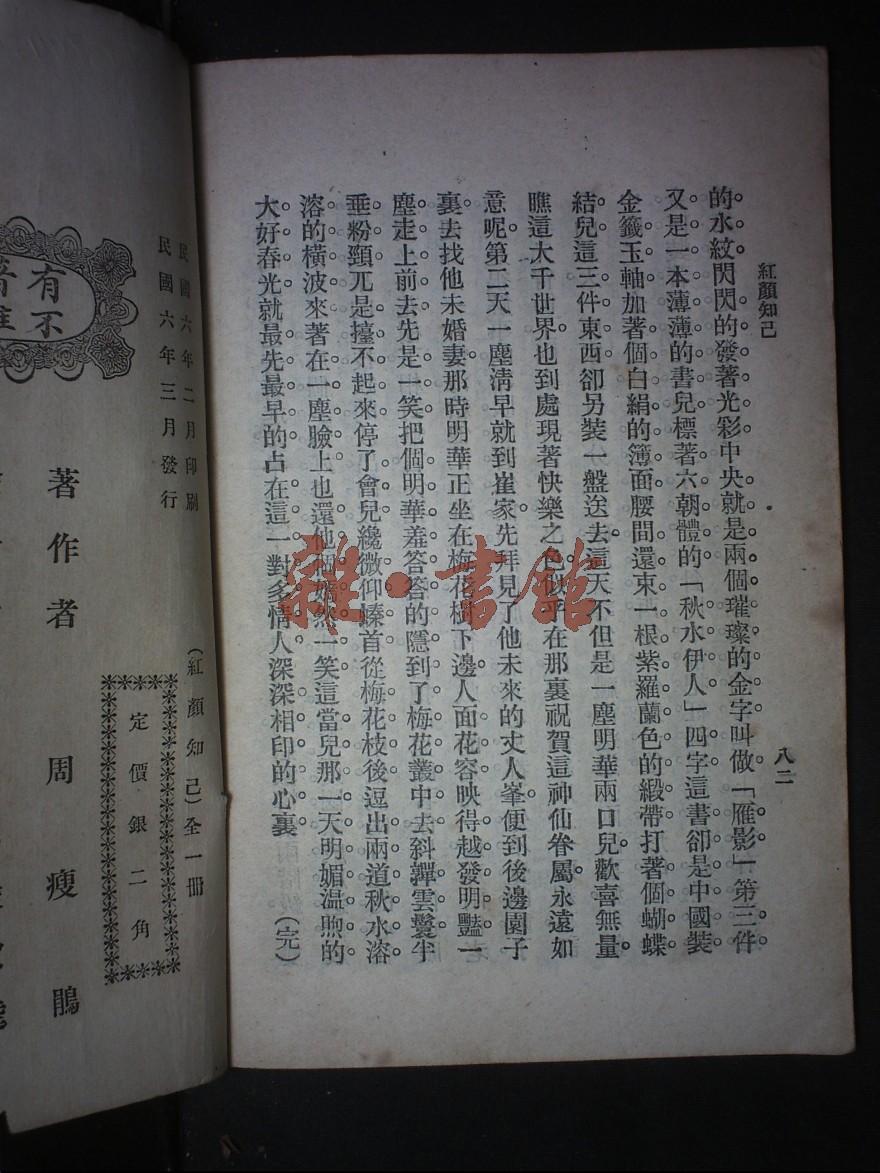 紅顏知己
八二
的水紋閃閃的發著光彩中央就是兩個璀璨的金字叫做「雁影」第三件
又是一本薄薄的書兒標著六朝體的「秋水伊人」四字這書卻是中國裝
金籤玉軸加著個白絹的簿面腰間還束一根紫羅蘭色的緞帶打著個蝴蝶
結兒這三件東西卻另裝一盤送去。這天不但是一塵明華兩口兒歡喜無量。
瞧這大千世界也到處現著快樂之色似乎在那裏祝賀這神仙眷屬永遠如
意呢。第二天一塵淸早就到崔家先拜見了他未來的丈人峯便到後邊園子
裏去找他未婚妻那時明華正坐在梅花樹下邊人面花容映得越發明豔一
塵走上前去先是一笑把個明華羞答答的隱到了梅花叢中去斜嚲雲鬟半
垂粉頸兀是擡不起來停了會兒纔微仰螓首從梅花枝後逗出兩道秋水溶
溶的橫波來著在一塵臉上也還他個嫣然一笑這當兒那一天明媚温煦的
大好春光就最先最早的占在這一對多情人深深相印的心裏。(完)
民國六年二月印刷
民國六年三月發行
(紅顏知己)全一冊
定價銀二角
著作者 周瘦鵑
有
不
雜·書館